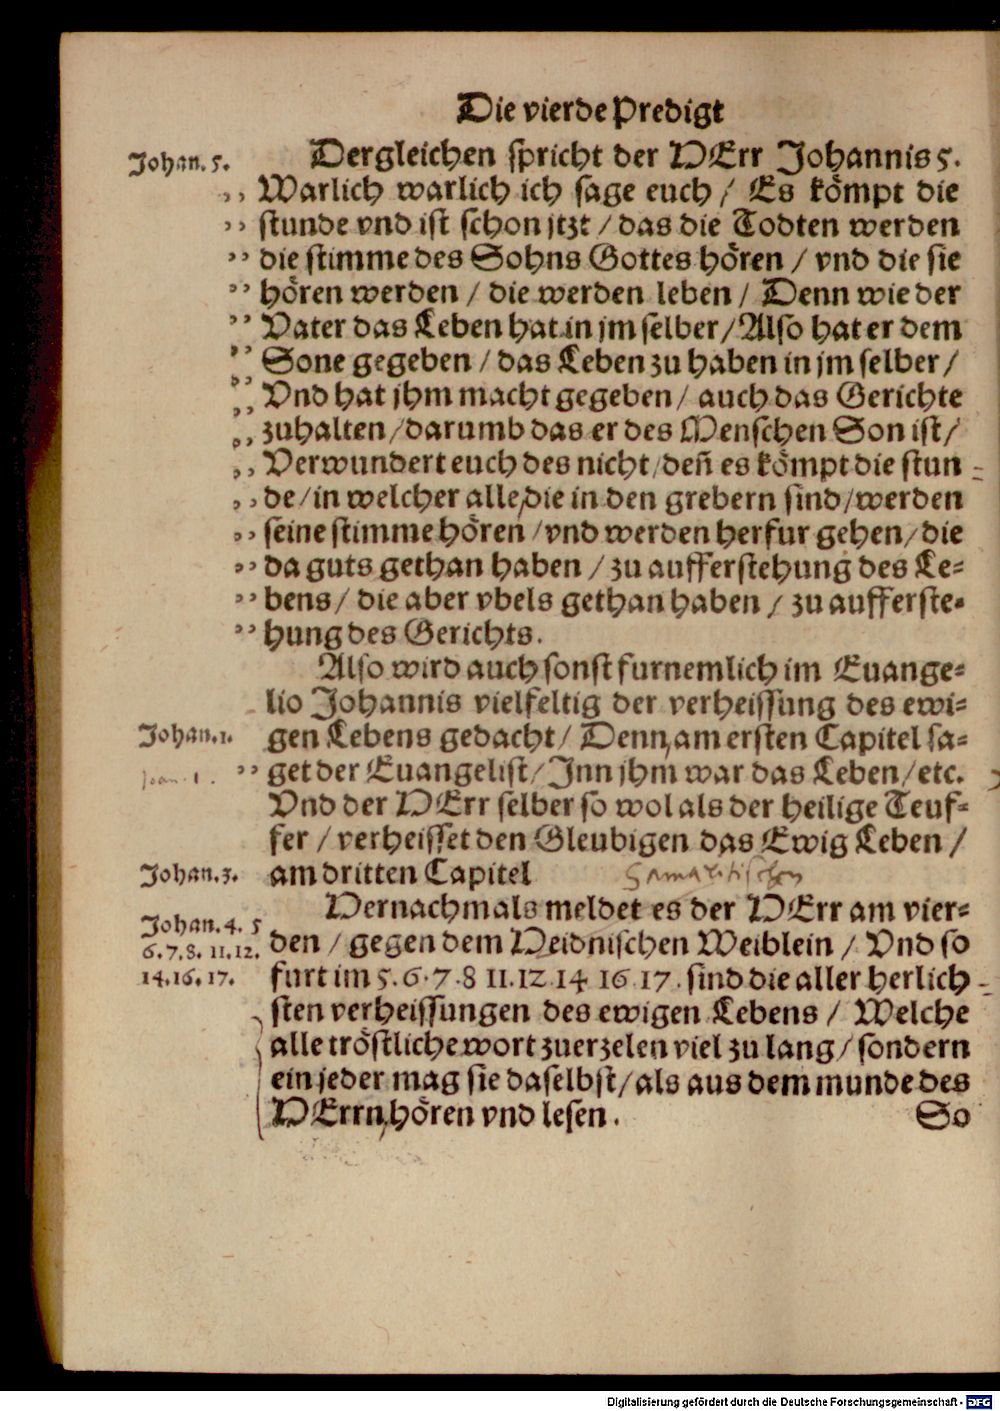 Die vierde Predigt
Johan. 5.
Dergleichen spricht der HErr Johannis 5.
,, Warlich warlich ich sage euch / Es kömpt die
,, stunde vnd ist schon jtzt / das die Todten werden
,, die stimme des Sohns Gottes hören / vnd die sie
,, hören werden / die werden leben / Denn wie der
,, Vater das Leben hat in jm selber / Also hat er dem
,, Sone gegeben / das Leben zu haben in jm selber /
,, Vnd hat jhm macht gegeben / auch das Gerichte
,, zuhalten / darumb das er des Menschen Son ist /
,, Verwundert euch des nicht / deñ es kömpt die stun
,, de / in welcher alle, die in den grebern sind / werden
,, seine stimme hören / vnd werden herfur gehen / die
,, da guts gethan haben / zu aufferstehung des Le=
,, bens / die aber vbels gethan haben / zu aufferste=
,, hung des Gerichts.
Also wird auch sonst furnemlich im Euange=
lio Johannis vielfeltig der verheissung des ewi=
Johan. 1.
gen Lebens gedacht / Denn, am ersten Capitel sa=
Joan. 1.
,, get der Euangelist / Inn jhm war das Leben / etc.
Vnd der HErr selber so wol als der heilige Teuf=
fer / verheisset den Gleubigen das Ewig Leben /
Johan. 3.
am dritten Capitel
Samaritischen
Hernachmals meldet es der HErr am vier=
Johan. 4. 5
6. 7. 8. 11. 12.
14. 16. 17.
den / gegen dem Heidnischen Weiblein / Vnd so
furt im 5. 6. 7. 8 11. 12 14 16 17. sind die aller herlich
sten verheissungen des ewigen Lebens / Welche
alle tröstliche wort zuerzelen viel zu lang / sondern
ein jeder mag sie daselbst / als aus dem munde des
HErrn, hören vnd lesen.
So
Digitalisierung gefördert durch die Deutsche Forschungsgemeinschaft - DFG